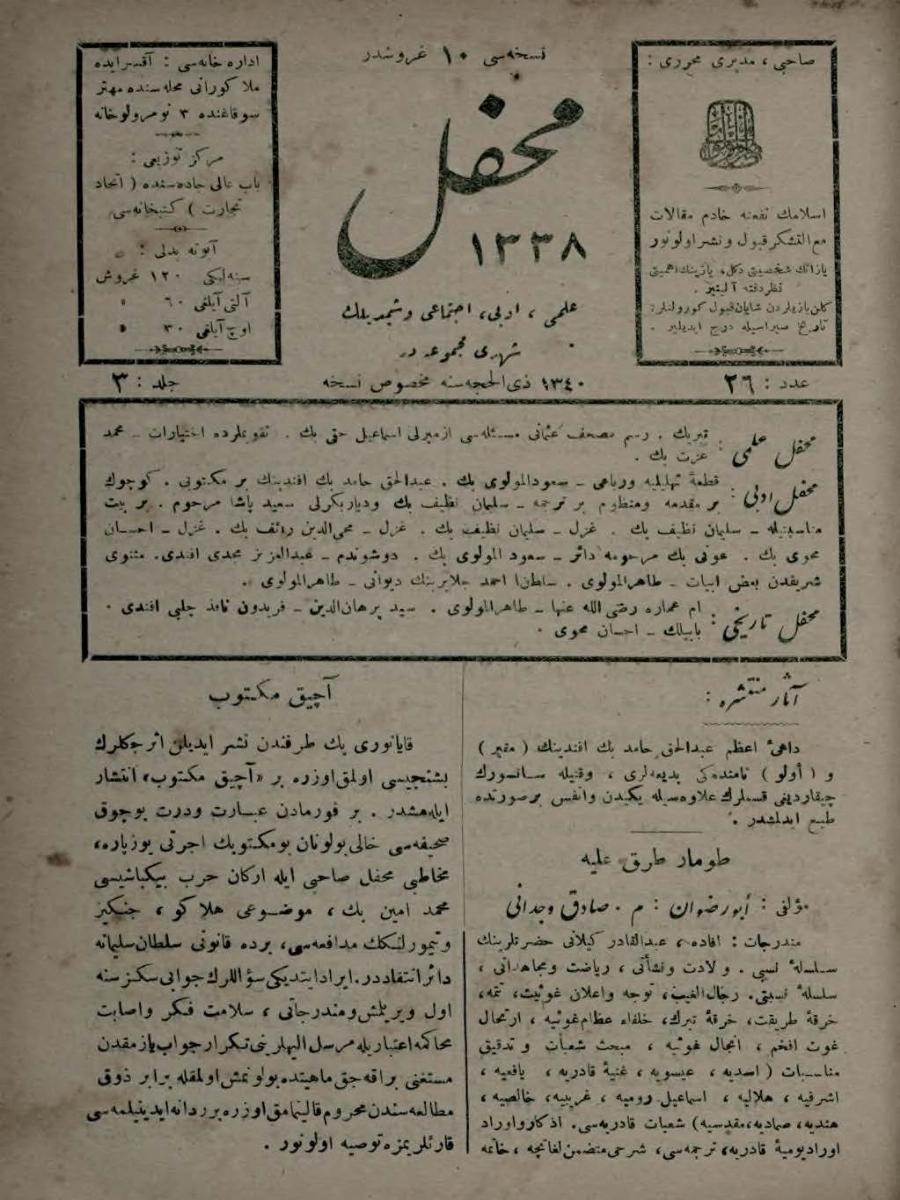 صاحبی ، مدیری محرری :
اسلامك نفعنه خادم مقالات
مع التشكر قبول و نشر اولونور
یازانك شخصیتی دكل، یازینك اهمیتی
نظر دقته آلینیر .
كلن یازیلردن شایان قبول كورولنلر
تاریخ صیراسیله درج ایدیلیر .
نسخه‌سی ١٠ غروشدر
محفل
١٣٣٨
علمی ، ادبی ، اجتماعی و
شهری مجموعه در
اداره خانه‌سی : آقسرایده
ملا كورانی محله‌سنده مهتر
سوقاغنده ٣ نومرولو خانه
مركز توزیعی :
باب عالی جاده‌سنده ( اتحاد
تجارت ) كتبخانه‌سی
آبونه بدلی :
سنه‌لیكی ١٢٠ غروش
آلتی آیلغی ٦٠ »
اوچ آیلغی ٣٠ »
عدد : ٢٦
١٣٤٠ ذی الحجه‌سنه مخصوص نسخه
جلد : ٣
محفل علمی : تبریك . رسم مصحف عثمانی مسئله‌سی ازمیرلی اسماعیل حقی بك . تقویملرده اختیارات ــ محمد
عزت بك .
محفل ادبی : قطعهٔ تهلیلیه ورباعی ــ سعود المولوی بك . عبدالحق حامد بك افندینك بر مكتوبی . كوچوك
بر مقدمه ومنظوم بر ترجمه ــ سلیمان نظیف بك ودیاربكرلی سعید پاشا مرحوم . بر بیت
مناسبتیله ــ سلیمان نظیف بك . غزل ــ سلیمان نظیف بك . غزل ــ محی الدین رائف بك . غزل ــ احسان
محوی بك . عونی بك مرحومه دائر ــ سعود المولوی بك . دوشوندم ــ عبدالعزیز مجدی افندی. مثنوی
شریفدن بعض ابیات ــ طاهر المولوی . سلطان احمد جلایرینك دیوانی ــ طاهر المولوی .
محفل تاریخی : ام عماره رضی الله عنها ــ طاهر المولوی . سید برهان الدین ــ فریدون نافذ چلبی افندی .
بابیلك ــ احسان محوی .
آثار منتشره :
داهیٔ اعظم عبدالحق حامد بك افندینك ( مقبر )
و ( اولو ) نامنده‌كی بدیعه‌لری ، وقتیله سانسورك
چیقاردیغی قسملرك علاوه‌سیله یكیدن وانفس بر صورتده
طبع ایدلمشدر .
طومار طرق علیه
مؤلفی : أبو رضوان : م . صادق وجدانی
مندرجات : افاده ، عبدالقادر كیلانی حضرتلرینك
سلسلهٔ نسبی . ولادت ونشأتی ، ریاضت ومجاهداتی ،
سلسلهٔ نسبتی. رجال الغیب، توجه واعلان غوثیت، تتمه،
خرقهٔ طریقت، خرقهٔ تبرك، خلفاء عظام غوثیه ، ارتحال
غوث افخم ، انجال غوثیه ، مبحث شعبات و تدقیق
مناسبات ( اسدیه ، عیسویه ، غنیهٔ قادریه ، یافعیه ،
اشرفیه ، هلالیه ، اسماعیل رومیه ، غریبیه، خالصیه ،
هندیه، صمادیه، مقدسیه) شعبات قادریه‌سی. اذكار واوراد
اوراد یومیهٔ قادریه، ترجمه‌سی، شرحی متضمن لغاتچه ، خاتمه
آچیق مكتوب
قایانوری بك طرفندن نشر ایدیلن اثرجكلرك
بشنجیسی اولمق اوزره بر «آچیق مكتوب» انتشار
ایله‌مشدر . بر فورمادن عبارت ودرت بوچوق
صحیفه‌سی خالی بولونان بو مكتوبك اجرتی یوز پاره،
مخاطبی محفل صاحبی ایله اركان حرب بیكباشیسی
محمد امین بك ، موضوعی هلاكو ، جنكیز
وتیمورلنكك مدافعه‌سی، برده قانونی سلطان سلیمانه
دائر انتقاددر. ایراد ایتدیكی سؤاللرك جوابی سكز سنه
اول ویریلمش ومندرجاتی ، سلامت فكر واصابت
محاكمه اعتباریله مرسل الیهلرینی تكرار جواب یازمقدن
مستغنی براقه‌جق ماهیتده بولونمش اولمقله برابر ذوق
مطالعه‌سندن محروم قالینمامق اوزره بر ردانه ایدینیلمه‌سی
قارئلریمزه توصیه اولونور .